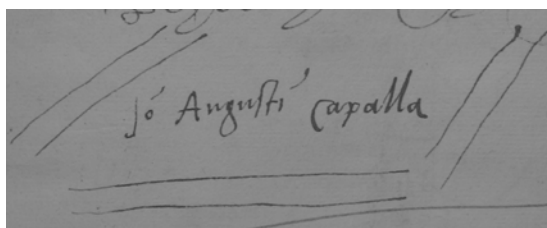 Jo Augusti capalla